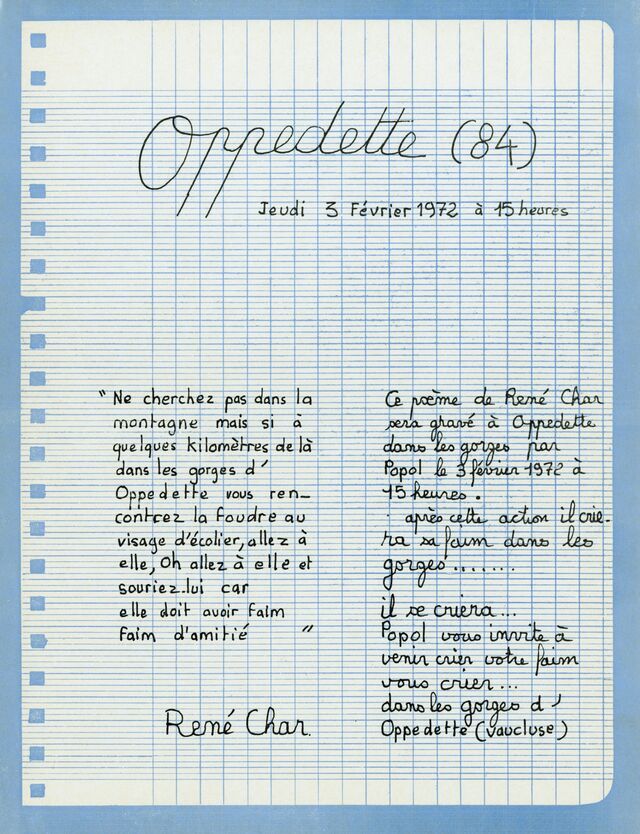 Oppedette (84)
Jeudi 3 Février 1972 à 15 heures
" Ne cherchez pas dans la
montagne mais si à
quelques kilomètres de là
dans les gorges d'
Oppedette vous ren_
contrez la foudre au
visage d'écolier, allez à
elle, Oh allez à elle et
souriez.lui car
elle doit avoir faim
faim d'amitié "
René Char.
Ce poème de René Char
sera gravé à Oppedette
dans les gorges par
Popol le 3 février 1972 à
15 heures.
après cette action il crie-
ra sa faim dans les
gorges.......
il se criera...
Popol vous invite à
venir crier votre faim
vous crier...
dans les gorges d'
Oppedette (vaucluse)